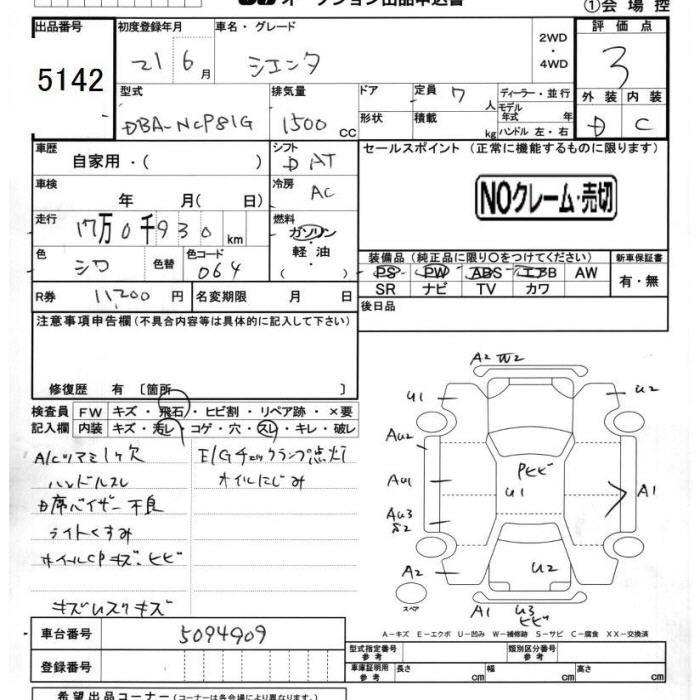 オークション出品申込書 ①会場控
出品番号 初度登録年月 車名・グレード 評価点
5142 21 6月 シエンタ 2WD・4WD 3
型式 排気量 ドア 定員 7人 ディーラー・並行 外装 内装
DBA-NCP81G 1500cc 形状 積載 kg モデル年式 年 ハンドル 左・右 D C
車歴 自家用・( ) シフト D AT セールスポイント (正常に機能するものに限ります)
車検 年 月( 日) 冷房 AC NOクレーム・売切
走行 17万0千930km 燃料 ガソリン・軽油・( )
色 シロ 色替 色コード 064 装備品(純正品に限り○をつけてください) 新車保証書
PS PW ABS エアB AW 有・無
R券 11,200円 名変期限 月 日 SR ナビ TV カワ
後日品
注意事項申告欄(不具合内容等は具体的に記入して下さい)
修復歴 有 〔箇所 〕
検査員 FW キズ・飛石・ヒビ割・リペア跡・×要
記入欄 内装 キズ・汚レ・コゲ・穴・スレ・キレ・破レ
A/Cツマミ1ヶ欠 E/Gチェックランプ点灯
ハンドルスレ オイルにじみ
席バイザー不良
ライトくすみ
ホイルCPキズ、ヒビ
キズ
A2 W2
U1 U2
AU2
PヒビU1
AU1 A1
AU3
S2
A2 U2
スペア A1 U3
ヒビ
A-キズ E-エクボ U-凹み W-補修跡 S-サビ C-腐食 XX-交換済
車台番号 5094909
登録番号
型式指定番号 参考 類別区分番号 参考
車庫証明用 参考 長さ cm 幅 cm 高さ cm
希望出品コーナー(コーナーは各会場により異なります。)